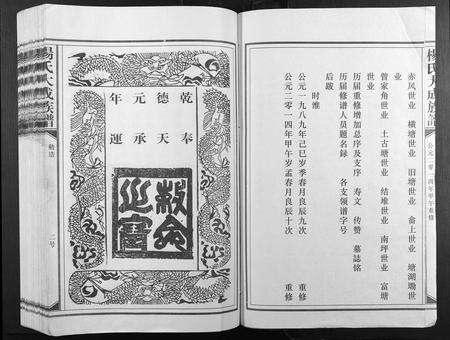 楊氏大成族譜
公元二零一四年甲午重修
赤风世业 横塘世业 旧塘世业 畲上世业 塘湖塅世
业
曾家角世业 土古塘世业 结堆世业 南坪世业 富塘
世业
历届重修增加总序及支序 寿文 传赞 墓誌铭
历届修谱人员题名录 各支领谱字号
后跋
时维
公元一九八九年己巳岁季春月良辰九次 重修
公元二零一四年甲午岁孟春月良辰十次 重修
乾德元年
奉天承運
敕命之寶
楊氏大成族譜
敕诰
二号